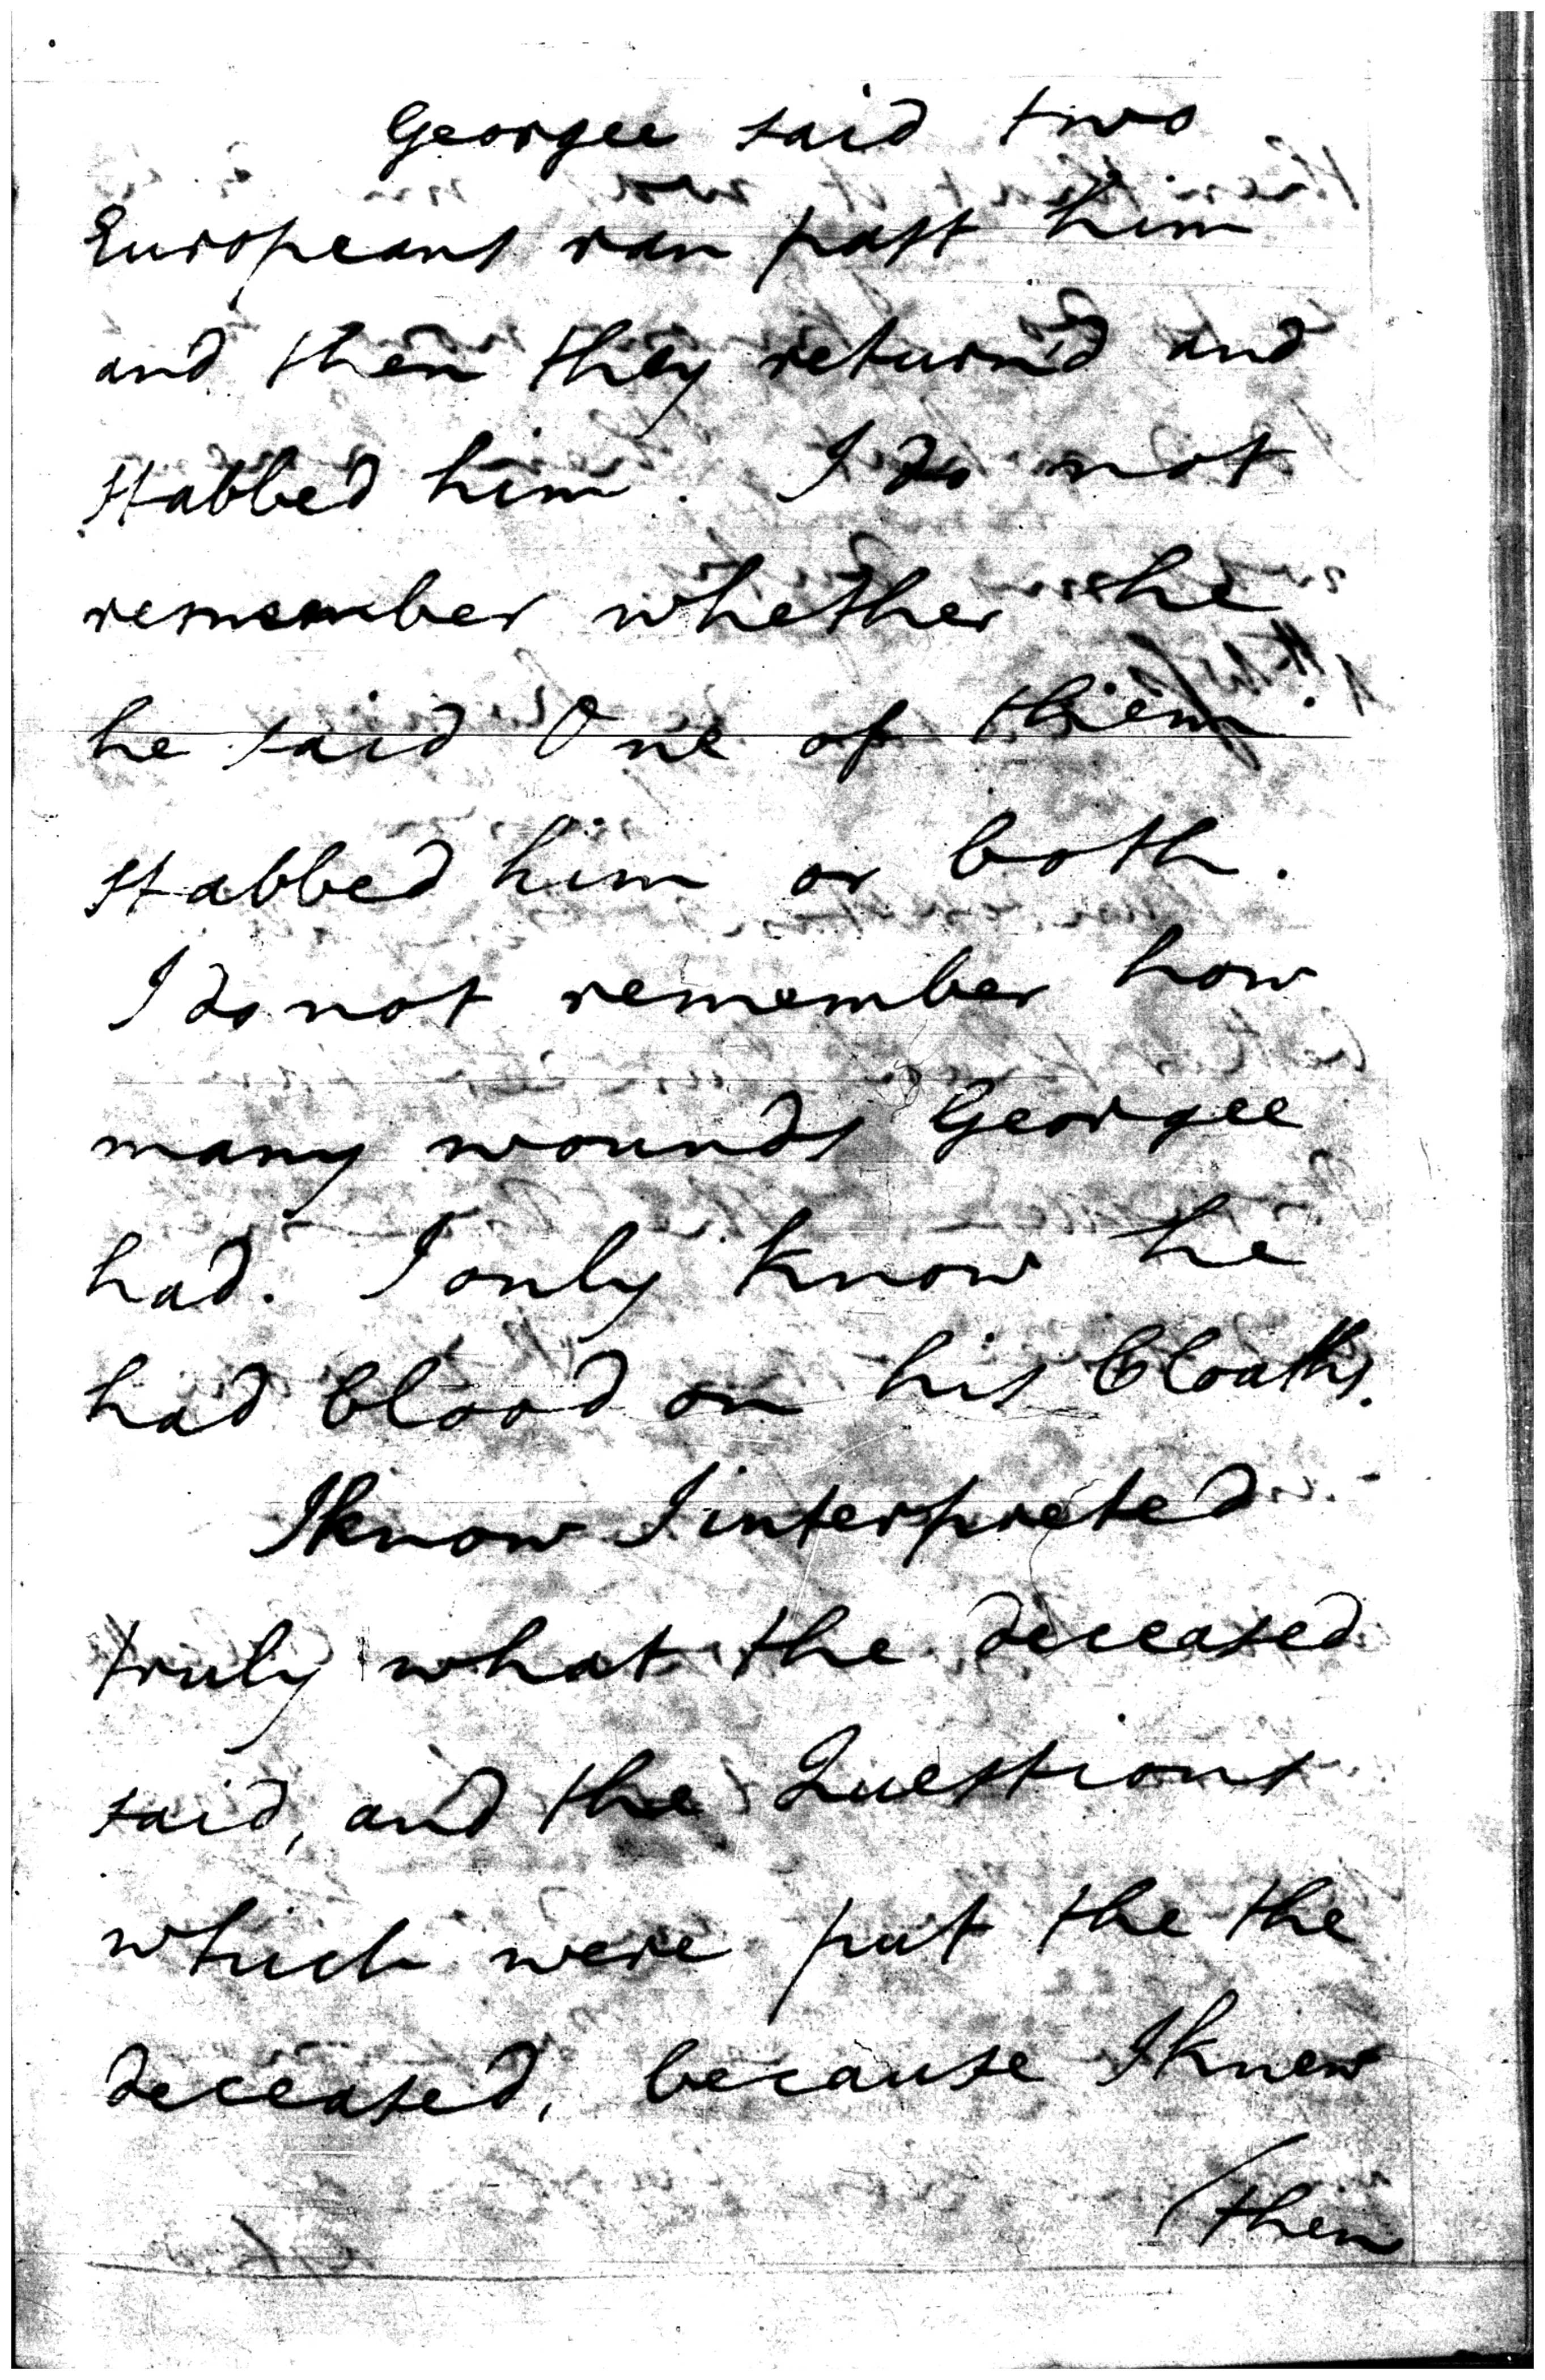 Georgee said two
Europeans ran past him
and then they return'd and
stabbed him. I do not
remember whether he
he said One of them
stabbed him or both.
I do not remember how
many wounds Georgee
had. I only know he
had blood on his Cloaths.
I know I interpreted
truly what the deceased
said, and the Questions
which were put the the
deceased, because I knew
(then